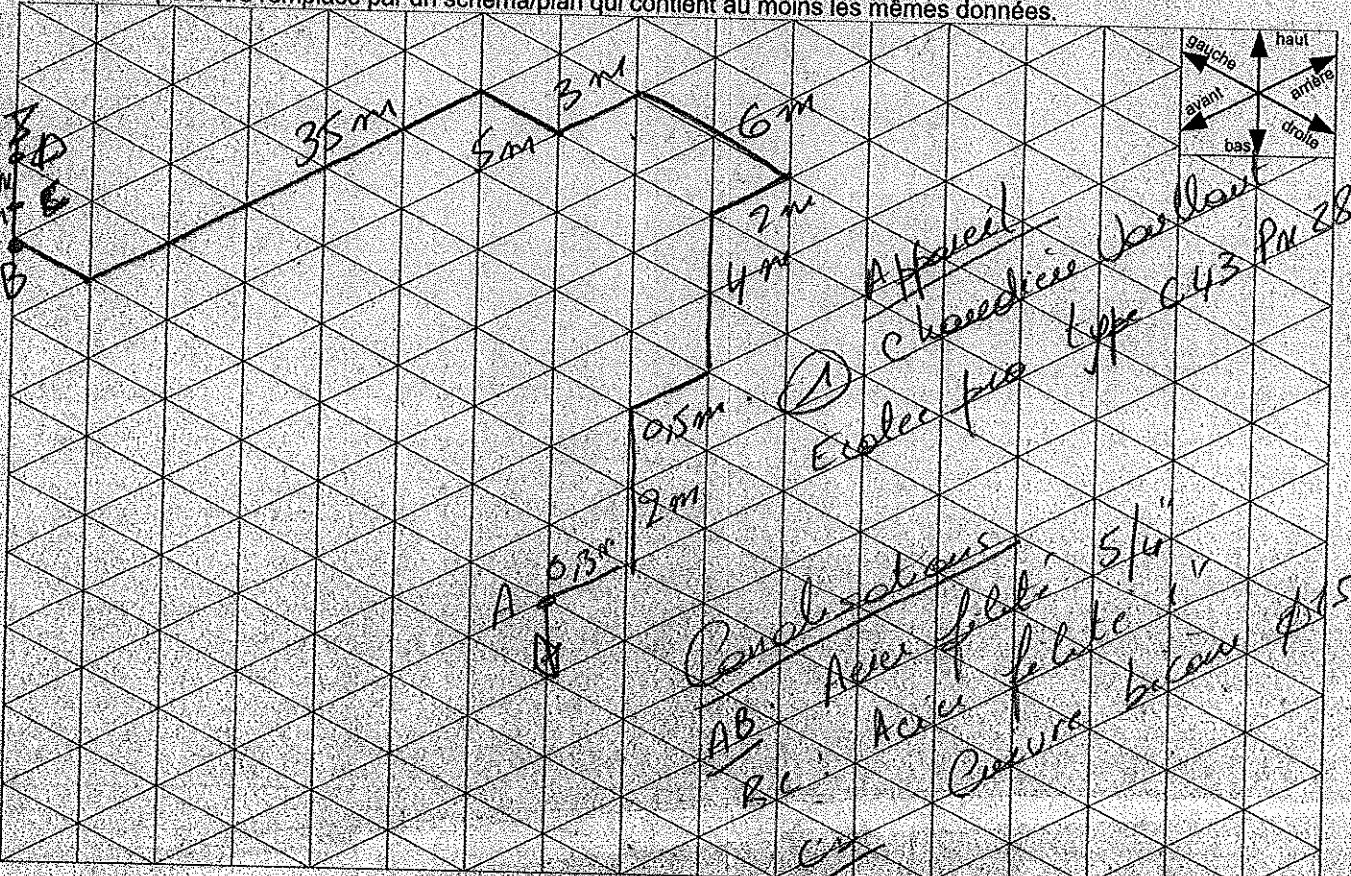 être remplacé par un schéma/plan qui contient au moins les mêmes données.
gauche
haut
arrière
avant
droite
bas
35 m
5 m
3 m
6 m
2 m
4 m
0,5m
2m
0,3m
A
B
D
Appareil
① Chaudière Vaillant
Ecotec pro type C43 Pn 28
Canalisations
AB: Acier fileté 5/4"
BC: Acier fileté 1"
Cuivre bicone ϕ15